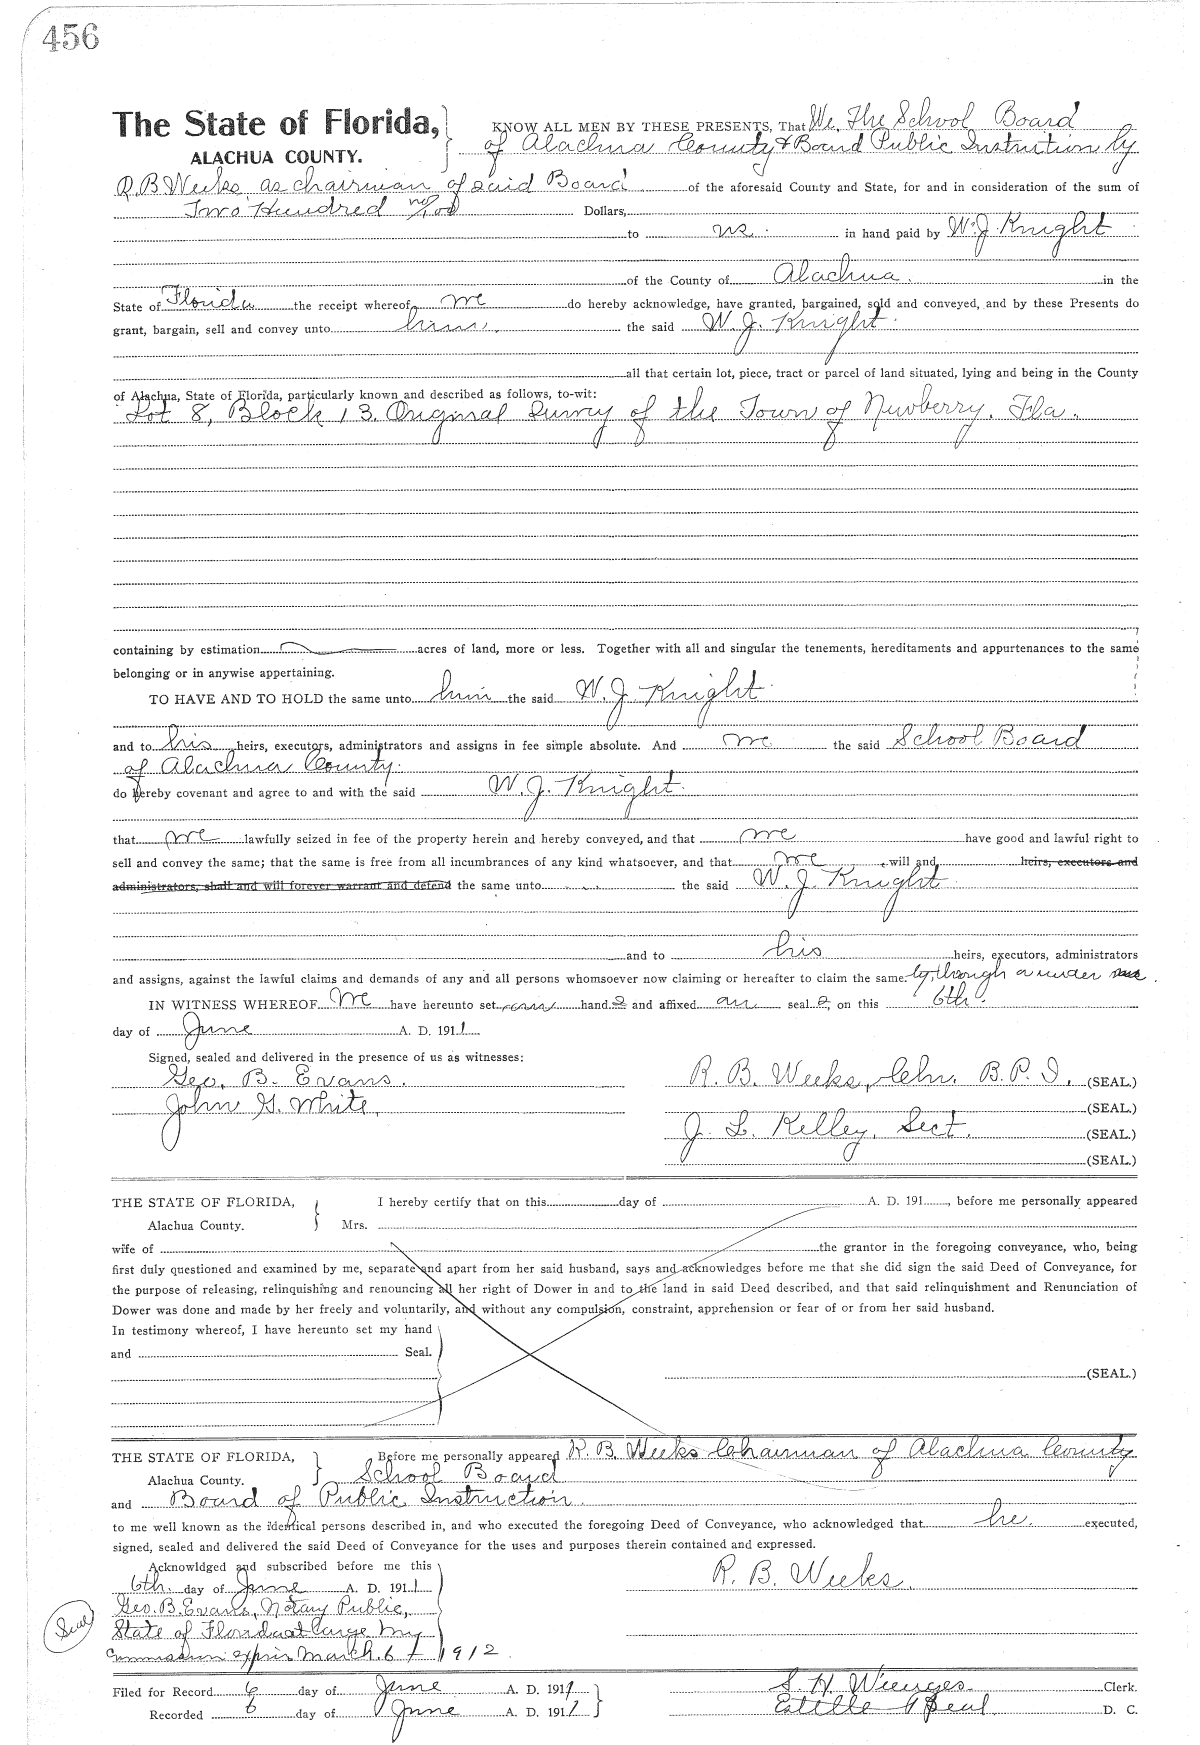 456
The State of Florida, KNOW ALL MEN BY THESE PRESENTS, That We, The School Board
ALACHUA COUNTY. of Alachua County & Board Public Instruction by
R. B. Weeks as chairman of said Board of the aforesaid County and State, for and in consideration of the sum of
Two Hundred no/100 Dollars,
to us in hand paid by W. J. Knight
of the County of Alachua. in the
State of Florida the receipt whereof we do hereby acknowledge, have granted, bargained, sold and conveyed, and by these Presents do
grant, bargain, sell and convey unto him the said W. J. Knight
all that certain lot, piece, tract or parcel of land situated, lying and being in the County
of Alachua, State of Florida, particularly known and described as follows, to-wit:
Lot 8, Block 13. Original Survey of the Town of Newberry. Fla.
containing by estimation acres of land, more or less. Together with all and singular the tenements, hereditaments and appurtenances to the same
belonging or in anywise appertaining.
TO HAVE AND TO HOLD the same unto him the said W. J. Knight
and to his heirs, executors, administrators and assigns in fee simple absolute. And we the said School Board
of Alachua County.
do hereby covenant and agree to and with the said W. J. Knight
that we lawfully seized in fee of the property herein and hereby conveyed, and that we have good and lawful right to
sell and convey the same; that the same is free from all incumbrances of any kind whatsoever, and that we will and heirs, executors and
administrators, shall and will forever warrant and defend the same unto the said W. J. Knight
and to his heirs, executors, administrators
and assigns, against the lawful claims and demands of any and all persons whomsoever now claiming or hereafter to claim the same. by, through or under
IN WITNESS WHEREOF We have hereunto set our hands and affixed our seals, on this 6th.
day of June A. D. 1911
Signed, sealed and delivered in the presence of us as witnesses:
Geo. B. Evans. R. B. Weeks, Chr. B. P. I. (SEAL.)
John G. White, (SEAL.)
J. L. Kelley, Sect. (SEAL.)
(SEAL.)
THE STATE OF FLORIDA, I hereby certify that on this day of A. D. 191 , before me personally appeared
Alachua County. Mrs.
wife of the grantor in the foregoing conveyance, who, being
first duly questioned and examined by me, separate and apart from her said husband, says and acknowledges before me that she did sign the said Deed of Conveyance, for
the purpose of releasing, relinquishing and renouncing all her right of Dower in and to the land in said Deed described, and that said relinquishment and Renunciation of
Dower was done and made by her freely and voluntarily, and without any compulsion, constraint, apprehension or fear of or from her said husband.
In testimony whereof, I have hereunto set my hand
and Seal.
(SEAL.)
THE STATE OF FLORIDA, Before me personally appeared R. B. Weeks Chairman of Alachua County
Alachua County. School Board
and Board of Public Instruction
to me well known as the identical persons described in, and who executed the foregoing Deed of Conveyance, who acknowledged that he executed,
signed, sealed and delivered the said Deed of Conveyance for the uses and purposes therein contained and expressed.
Acknowldged and subscribed before me this
6th. day of June A. D. 1911 R. B. Weeks.
Geo. B. Evans, Notary Public,
Seal State of Florida at large My
Commission expires March. 6 1912
Filed for Record 6 day of June A. D. 1911 S. H. Wienges. Clerk.
Recorded 6 day of June A. D. 1911 Estelle D. C.